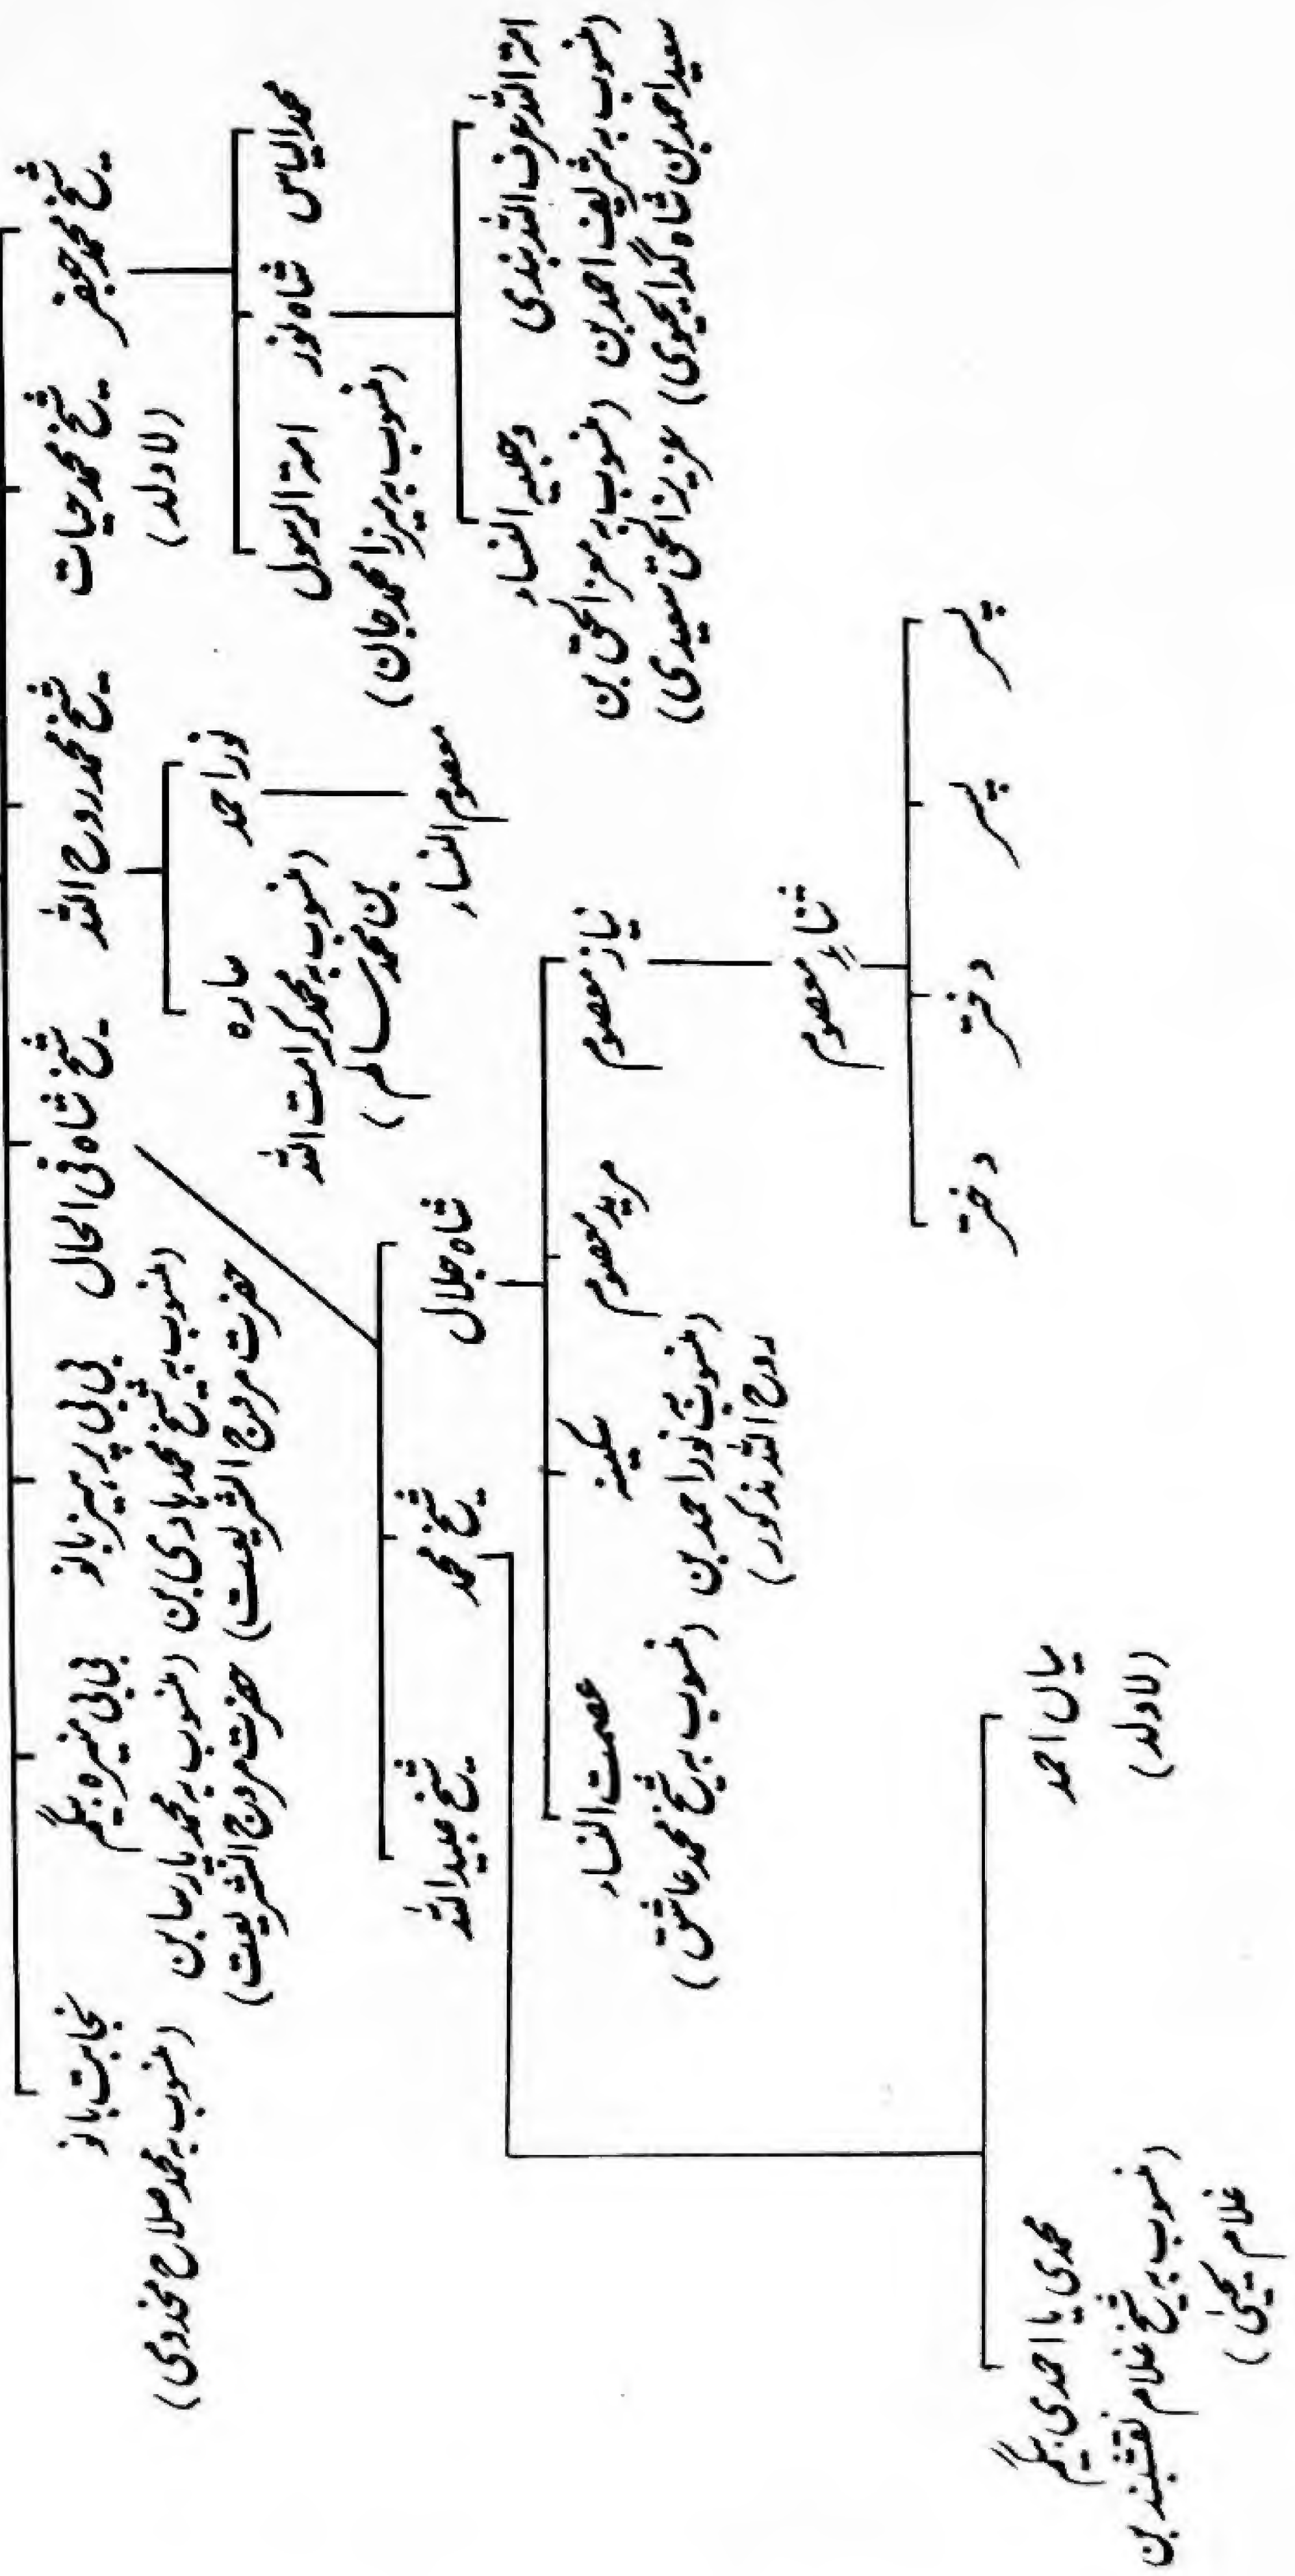 شیخ محمد جعفر
شیخ محمد حیات
(لاولد)
شیخ محمد روح اللہ
شیخ شاہ فی الحال
بی بی پرہیز بانو
(منسوب بہ شیخ محمد ہادی بن
حضرت مروج الشریعت)
بی بی منیرہ بیگم
(منسوب بہ محمد پارسا بن
حضرت مروج الشریعت)
نجابت بانو
(منسوب بہ محمد صلاح مخدومی)
محمد الیاس
شاہ نور
امۃ الرسول
(منسوب بہ میرزا محمد جان)
امۃ اللہ عرف اللہ بندی
(منسوب بہ شریف احمد بن
سعید احمد بن شاہ گدا یحیوی)
وجیہ النساء
(منسوب بہ معز الحق بن
عزیز الحق سعیدی)
نور احمد
سارہ
(منسوب بہ محمد کرامت اللہ
بن محمد سالم)
معصوم النساء
شاہ جلال
شیخ محمد
شیخ عبید اللہ
نیاز معصوم
مرید معصوم
سکینہ
(منسوب بہ نور احمد بن
روح اللہ مذکور)
عصمت النساء
(منسوب بہ شیخ محمد عاشق)
ثناءِ معصوم
پسر
پسر
دختر
دختر
میاں احمد
(لاولد)
محمدی یا احمدی بیگم
(منسوب بہ شیخ غلام نقشبند بن
غلام یحییٰ)